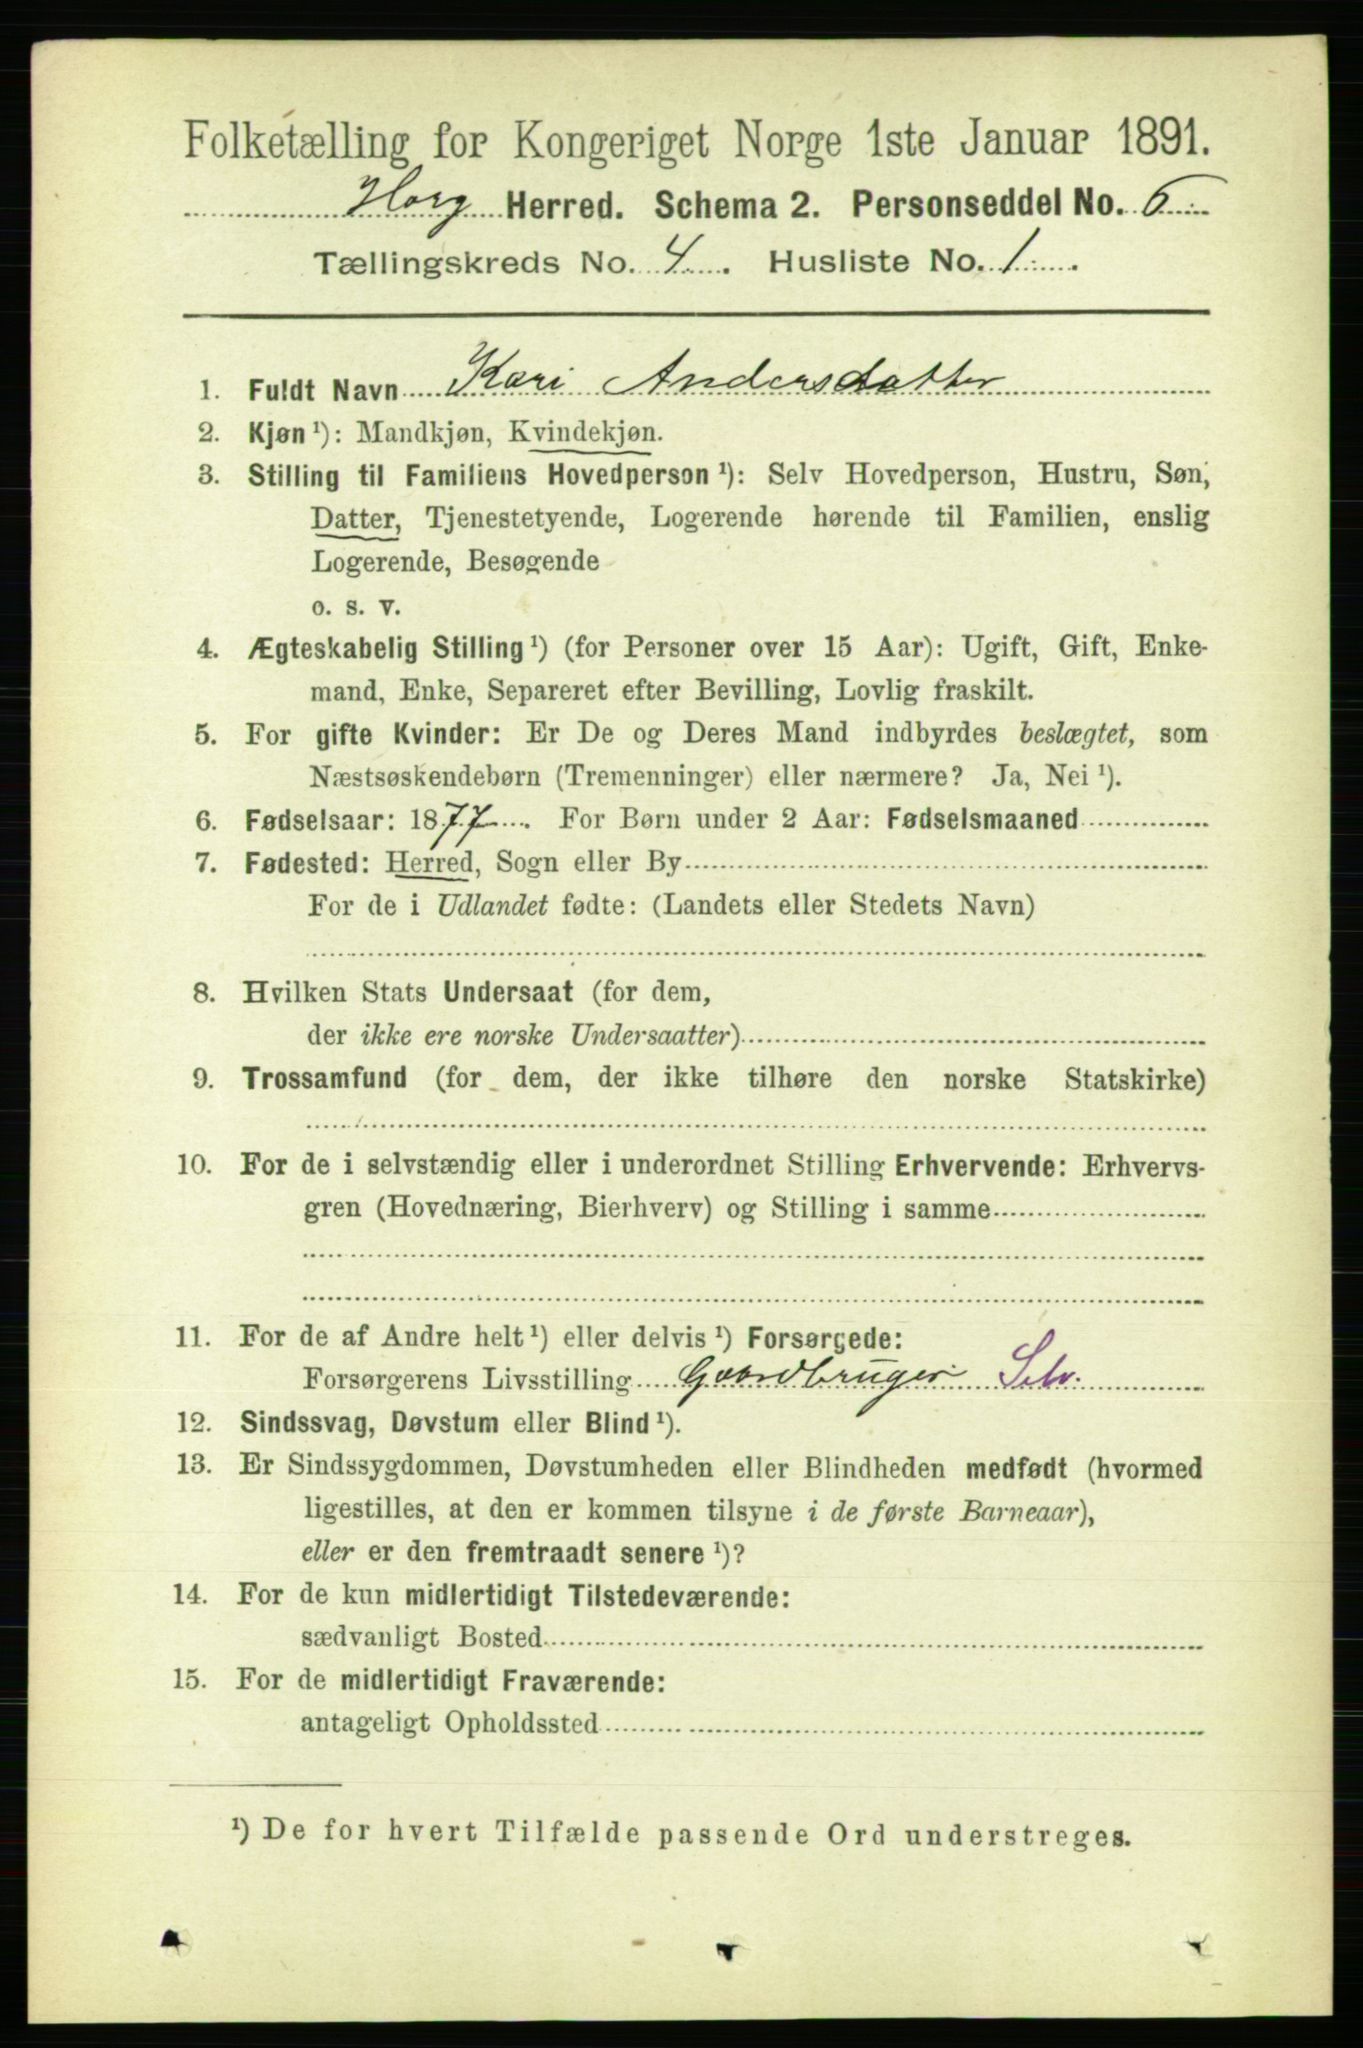 Folketælling for Kongeriget Norge 1ste Januar 1891.
Horg Herred. Schema 2. Personseddel No. 6
Tællingskreds No. 4. Husliste No. 1.
1. Fuldt Navn Kari Andersdatter
2. Kjøn¹): Mandkjøn, Kvindekjøn.
3. Stilling til Familiens Hovedperson¹): Selv Hovedperson, Hustru, Søn,
Datter, Tjenestetyende, Logerende hørende til Familien, enslig
Logerende, Besøgende
o. s. v.
4. Ægteskabelig Stilling¹) (for Personer over 15 Aar): Ugift, Gift, Enke-
mand, Enke, Separeret efter Bevilling, Lovlig fraskilt.
5. For gifte Kvinder: Er De og Deres Mand indbyrdes beslægtet, som
Næstsøskendebørn (Tremenninger) eller nærmere? Ja, Nei¹).
6. Fødselsaar: 1877. For Børn under 2 Aar: Fødselsmaaned
7. Fødested: Herred, Sogn eller By
For de i Udlandet fødte: (Landets eller Stedets Navn)
8. Hvilken Stats Undersaat (for dem,
der ikke ere norske Undersaatter)
9. Trossamfund (for dem, der ikke tilhøre den norske Statskirke)
10. For de i selvstændig eller i underordnet Stilling Erhvervende: Erhvervs-
gren (Hovednæring, Bierhverv) og Stilling i samme
11. For de af Andre helt¹) eller delvis¹) Forsørgede:
Forsørgerens Livsstilling Gaardbruger Selv.
12. Sindssvag, Døvstum eller Blind¹).
13. Er Sindssygdommen, Døvstumheden eller Blindheden medfødt (hvormed
ligestilles, at den er kommen tilsyne i de første Barneaar),
eller er den fremtraadt senere¹)?
14. For de kun midlertidigt Tilstedeværende:
sædvanligt Bosted
15. For de midlertidigt Fraværende:
antageligt Opholdssted
¹) De for hvert Tilfælde passende Ord understreges.